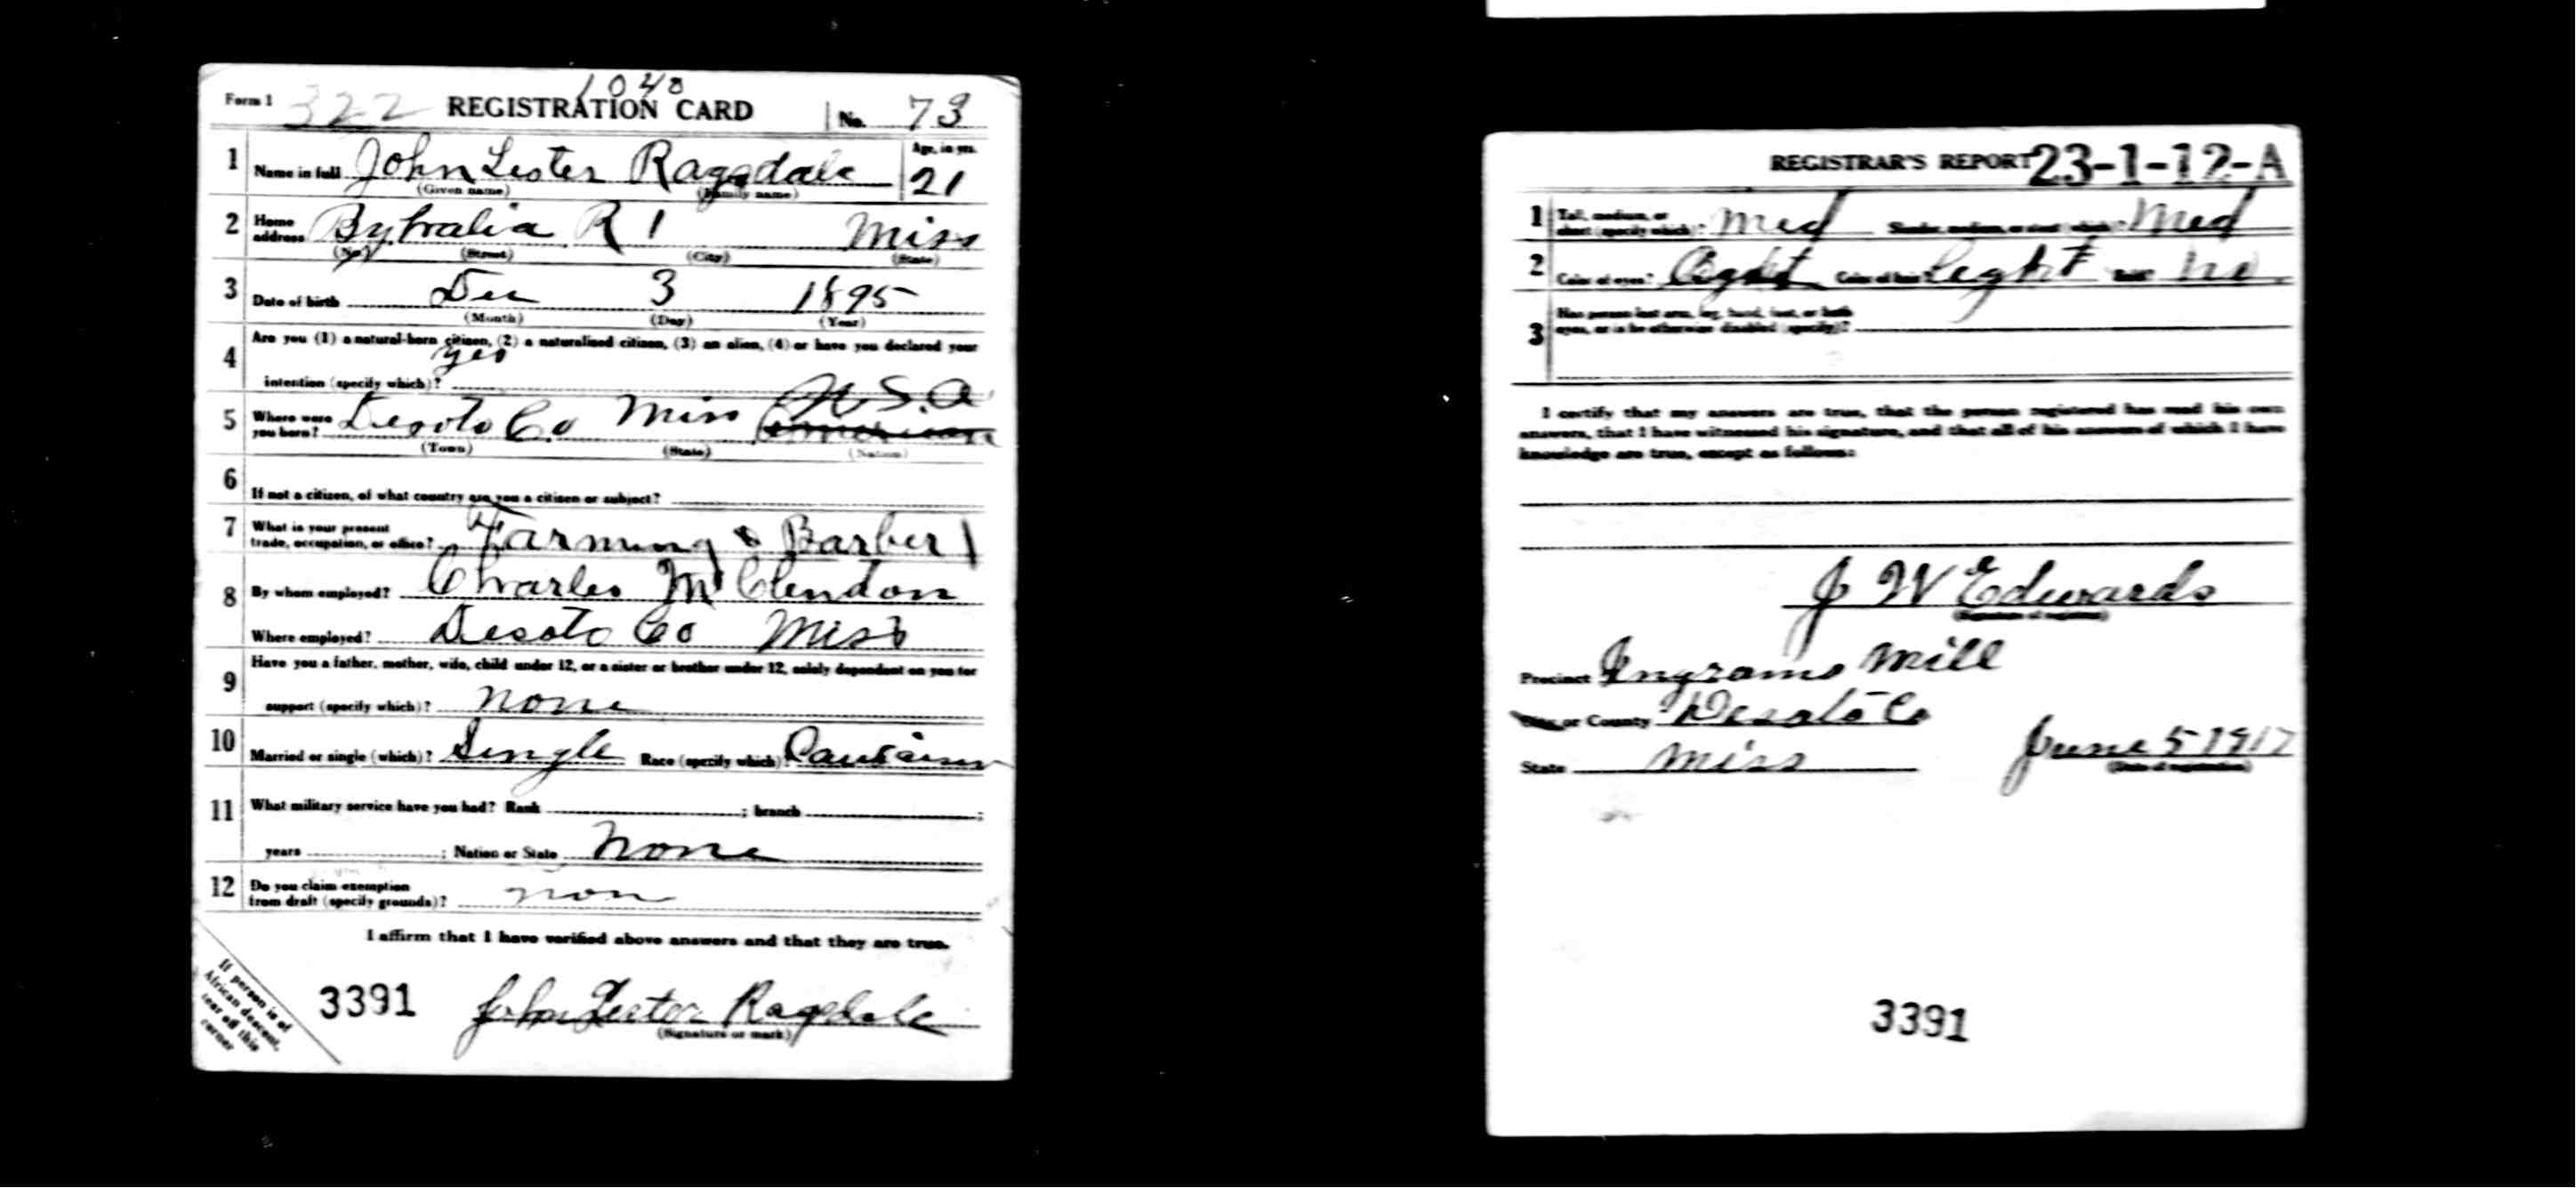 1048
Form 1 322 REGISTRATION CARD No. 73
1 Name in full John Lester Ragsdale Age, in yrs. 21
(Given name) (Family name)
2 Home address Byhalia R 1 Miss
(No.) (Street) (City) (State)
3 Date of birth Dec 3 1895
(Month) (Day) (Year)
4 Are you (1) a natural-born citizen, (2) a naturalized citizen, (3) an alien, (4) or have you declared your
intention (specify which)? yes
U.S.A
5 Where were you born? Desoto Co Miss American
(Town) (State) (Nation)
6 If not a citizen, of what country are you a citizen or subject?
7 What is your present trade, occupation, or office? Farming & Barber
8 By whom employed? Charles McClendon
Where employed? Desoto Co Miss
9 Have you a father, mother, wife, child under 12, or a sister or brother under 12, solely dependent on you for
support (specify which)? none
10 Married or single (which)? Single Race (specify which)?
11 What military service have you had? Rank ; branch ;
years ; Nation or State none
12 Do you claim exemption from draft (specify grounds)? non
I affirm that I have verified above answers and that they are true.
If person is of
African descent,
tear off this
corner
3391 John Lester Ragsdale
(Signature or mark)
REGISTRAR'S REPORT 23-1-12-A
1 Tall, medium, or short (specify which)? med Slender, medium, or stout (which)? Med
2 Color of eyes? Light Color of hair? Light Bald? no
3 Has person lost arm, leg, hand, foot, or both eyes, or is he otherwise disabled (specify)?
I certify that my answers are true, that the person registered has read his own
answers, that I have witnessed his signature, and that all of his answers of which I have
knowledge are true, except as follows:
J W Edwards
(Signature of registrar)
Precinct Ingrams Mill
City or County Desoto Co
State Miss June 5 1917
(Date of registration)
3391